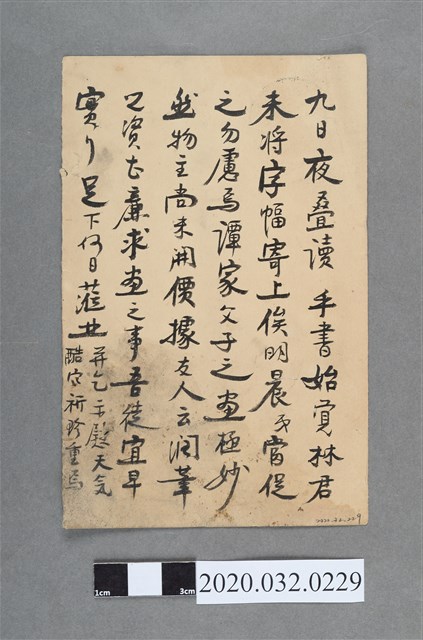 九日夜疊讀 手書始覺林君
未將字幅寄上俟明晨予當促
之勿慮焉譚家父子之画極妙
然物主尚未開價據友人云潤筆
之資甚廉求画之事吾徒宜早
實行 足下何日蒞此
并乞示慰天气
酷寒祈珍重焉
2020.032.0229
1cm 3cm
2020.032.0229